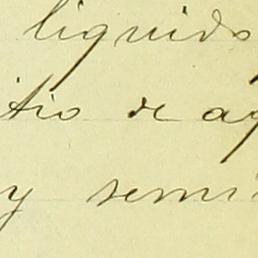 liquido
itio de aq
y semi